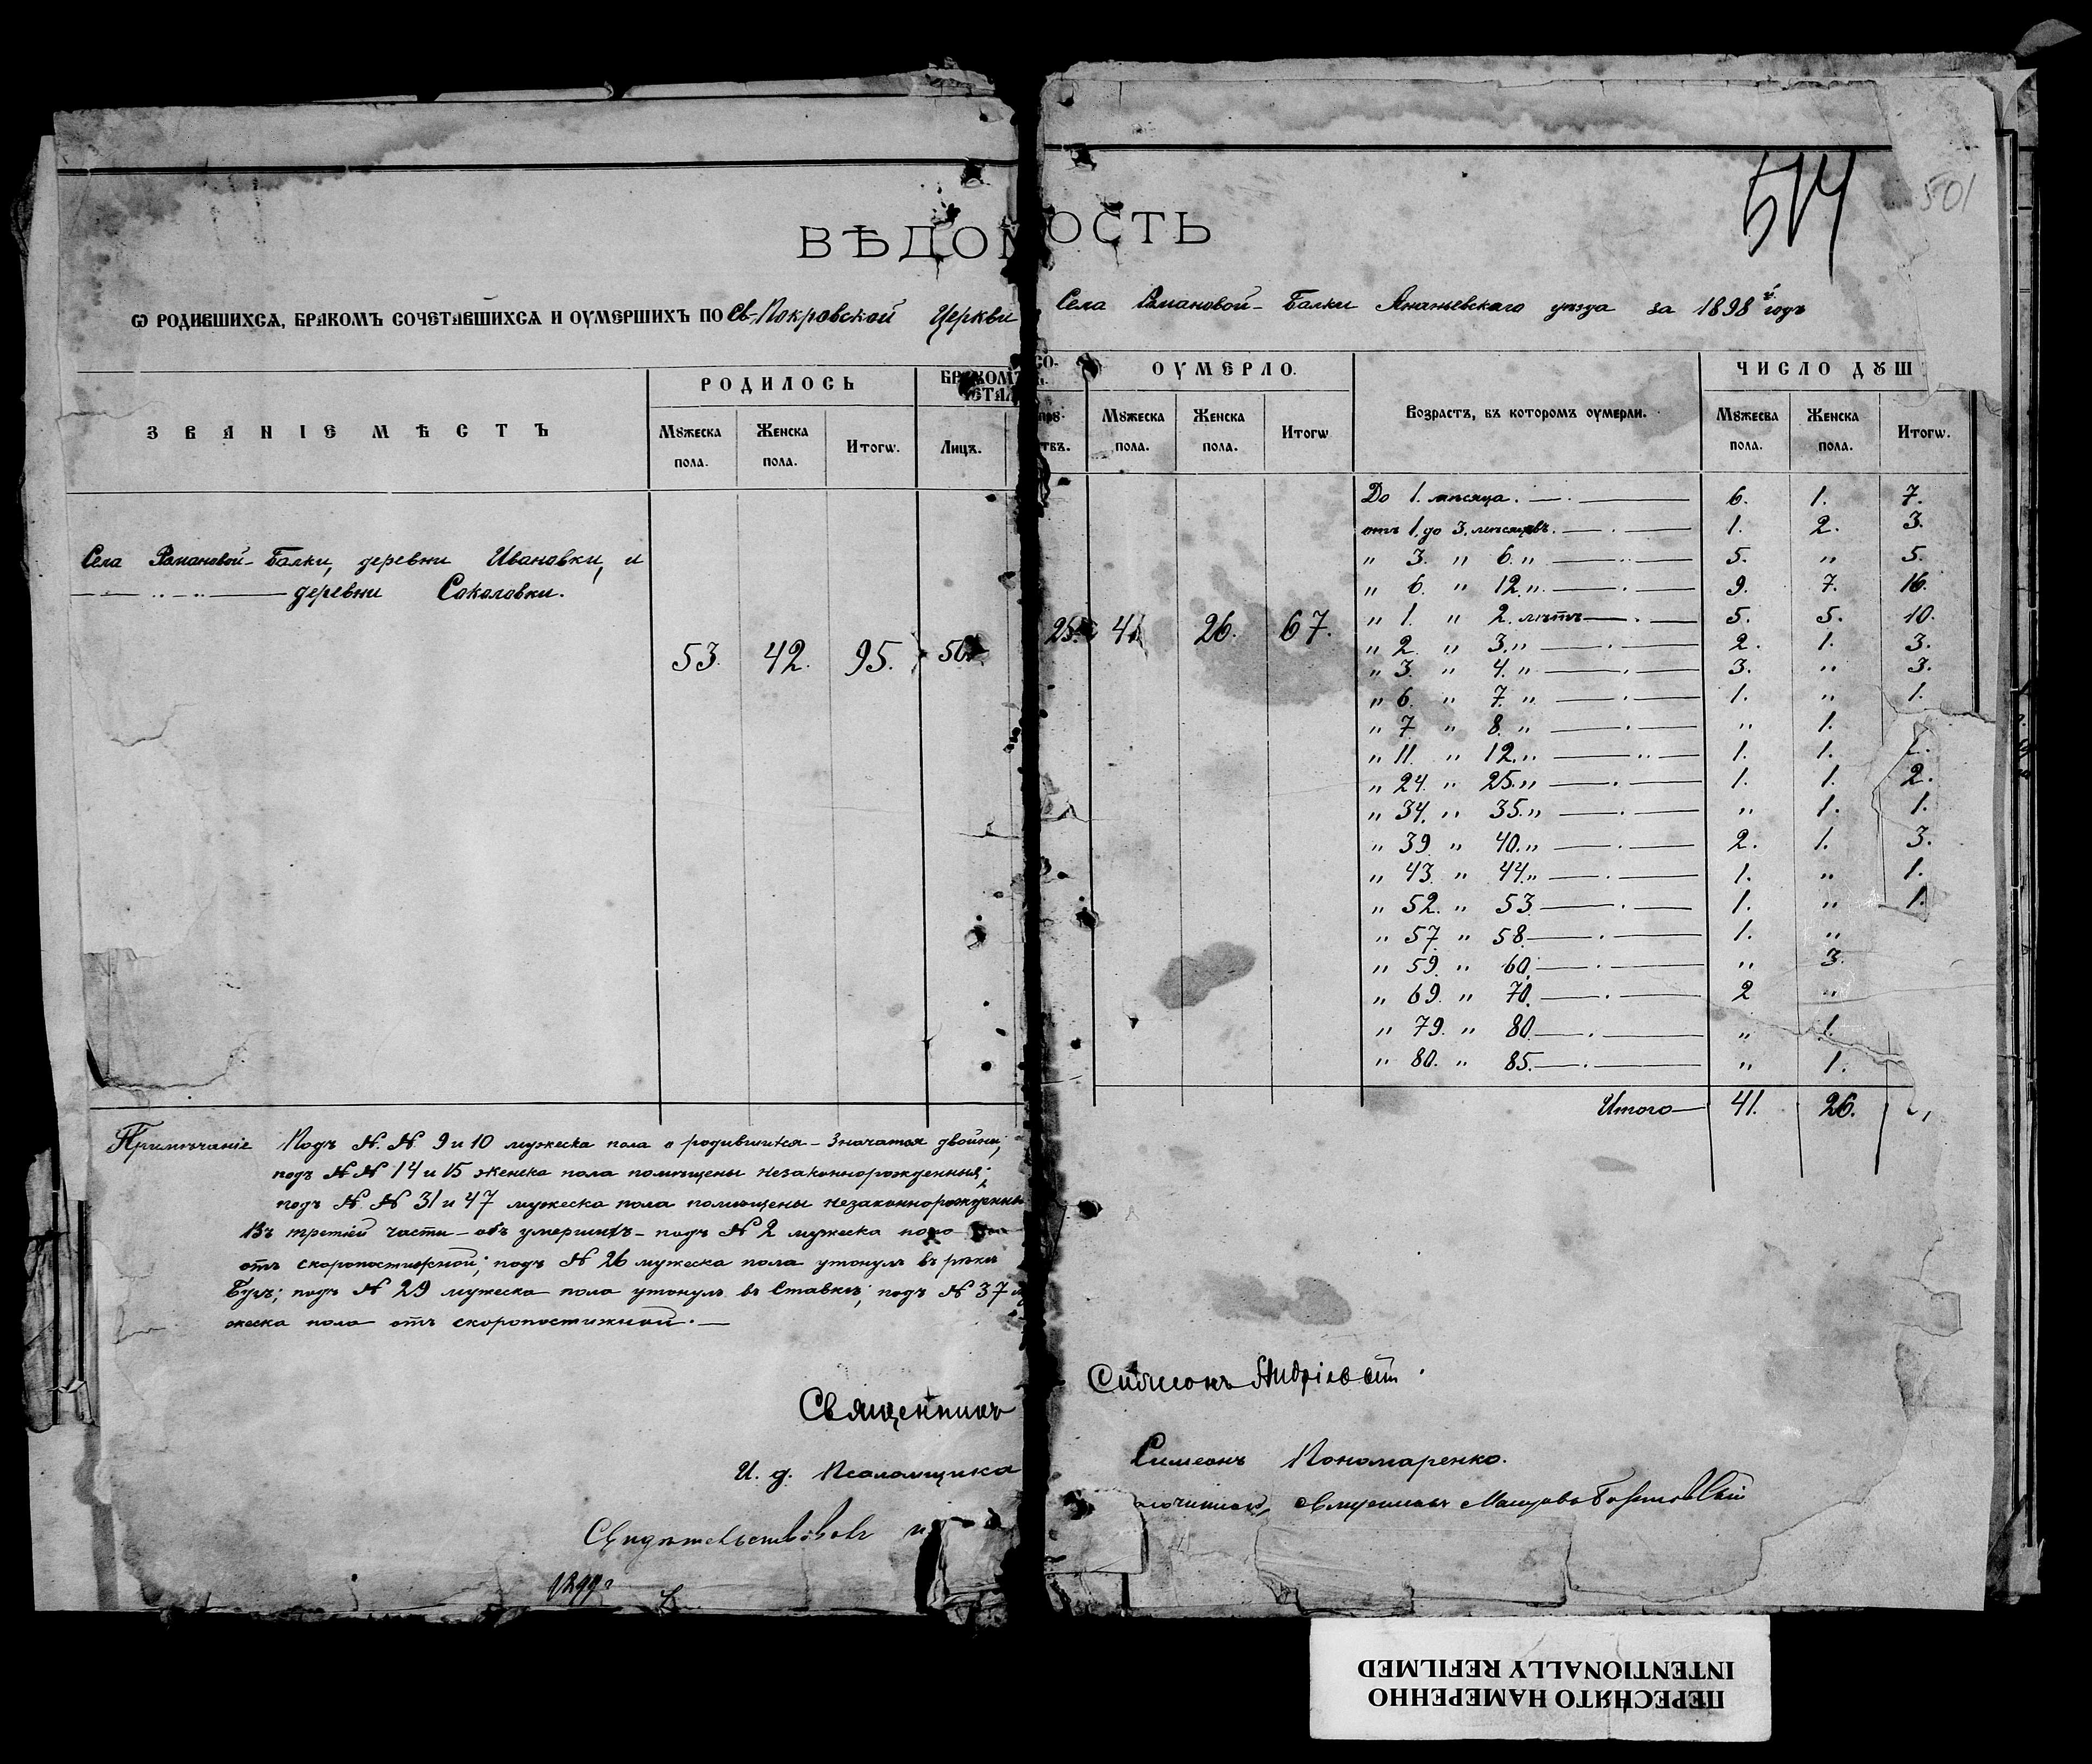 514
501
ВѢДОМОСТЬ
Ѡ РОДИВШИХСѦ, БРАКОМЪ СОЧЕТАВШИХСѦ И ОУМЕРШИХЪ ПО Св.-Покровской Церкви Села Романовой-Балки Ананьевскаго уѣзда за 1898 й годъ
ЗВАНІЕ МѢСТЪ
РОДИЛОСЬ
Мꙋжеска пола.
Женска пола.
Итогѡ.
БРАКОМЪ СО-
ЧЕТАЛ
Лицъ.
ОУМЕРЛО.
Мꙋжеска пола.
Женска пола.
Итогѡ
Возрастъ, въ которомъ оумерли.
ЧИСЛО ДꙊШ
Мꙋжесва пола.
Женска пола.
Итогѡ.
Села Романовой-Балки, деревни Ивановки, и
деревни Соколовки.
53. 42. 95. 50. 25. 41 26. 67.
До 1. мѣсяца. 6. 1. 7.
отъ 1. до 3. мѣсяцевъ. 1. 2. 3.
„ 3. „ 6. „ 5. „ 5.
„ 6. „ 12. „ 9. 7. 16.
„ 1. „ 2. лѣтъ 5. 5. 10.
„ 2. „ 3. „ 2. 1. 3.
„ 3. „ 4. „ 3. „ 3.
„ 6. „ 7. „ 1. „ 1.
„ 7 „ 8. „ „ 1.
„ 11. „ 12. „ 1. 1.
„ 24. „ 25. „ 1. 1. 2.
„ 34. „ 35. „ „ 1. 1.
„ 39. „ 40. „ 2. 1. 3.
„ 43. „ 44. „ 1. „ 1.
„ 52. „ 53 1. „ 1.
„ 57. „ 58. 1. „
„ 59. „ 60. „ 3.
„ 69. „ 70. 2 „
„ 79. „ 80. „ 1.
„ 80. „ 85. „ 1.
Итого 41. 26.
Примѣчаніе Подъ N. N. 9 и 10 мужеска пола о родившихся – значатся двойни;
подъ N N 14 и 15 женска пола помѣщены незаконнорожденныя;
подъ N. N 31 и 47 мужеска пола помѣщены незаконнорожденны
Въ третіей части – объ умершихъ – подъ N 2 мужеска пола
отъ скоропостижной; подъ N 26 мужеска пола утонулъ въ рѣкѣ
Бугъ; подъ N 29 мужеска пола утонулъ въ Ставкѣ; подъ N 37 му
жеска пола отъ скоропостижной.
Священникъ Симеонъ
И. д. Псаломщика Симеонъ Пономаренко.
Свидѣтельствовалъ священникъ
1899 г
ПЕРЕСНЯТО НАМЕРЕННО
INTENTIONALLY REFILMED